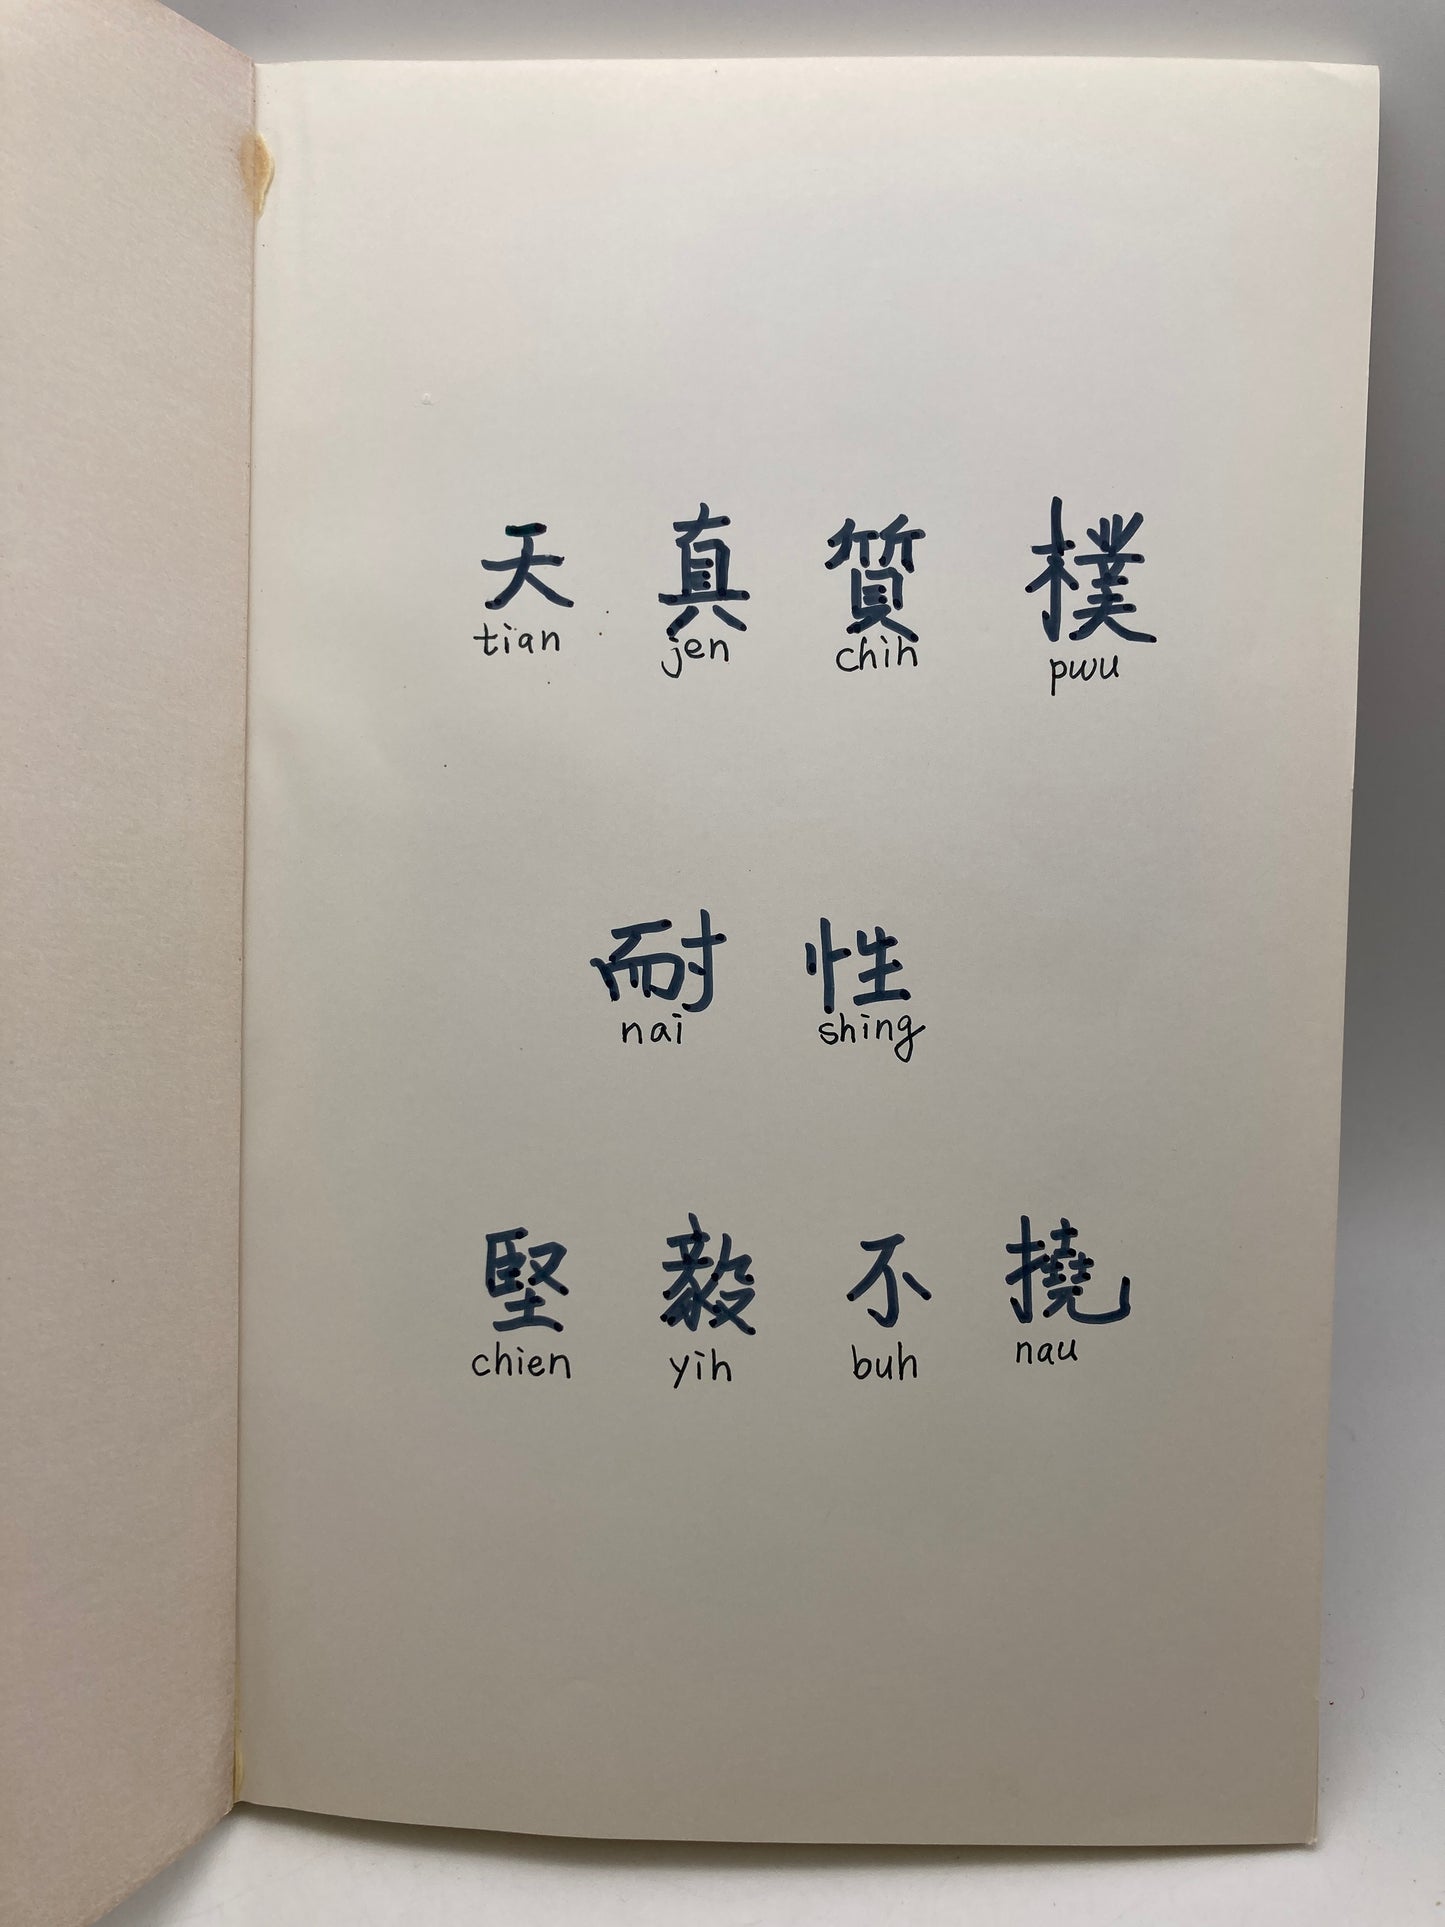 天 真 質 樸
tian jen chih pwu
耐 性
nai shing
堅 毅 不 撓
chien yih buh nau